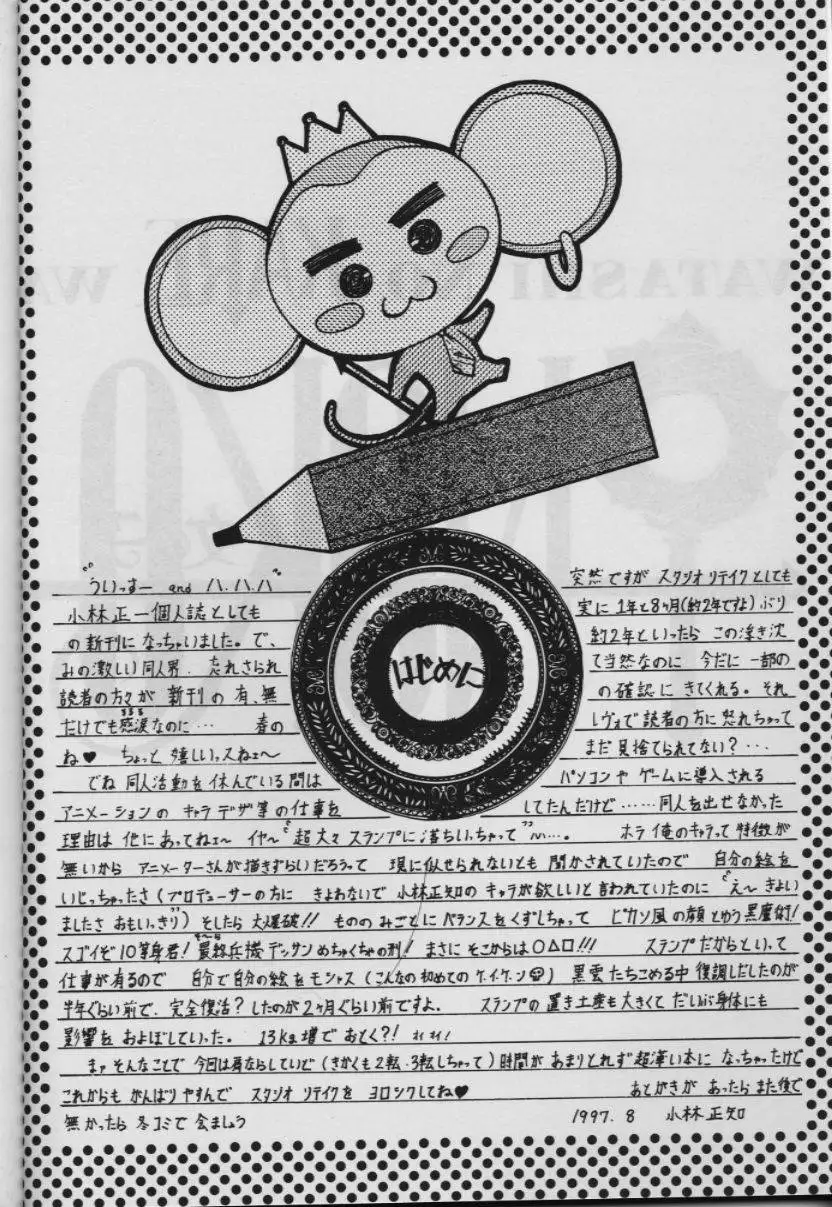 はじめに
"ういっすー and ハ,ハ,ハ" 突然ですが スタジオリテイクとしても
小林正一個人誌としても 実に1年と8ヶ月(約2年ですよ)ぶり
の新刊になっちゃいました。で、 約2年といったら この浮き沈
みの激しい同人界. 忘れさられ て当然なのに 今だに 一部の
読者の方々が 新刊の有、無 の確認に きてくれる。それ
だけでも感涙なのに… 春の レヴォで読者の方に怒れちゃって
ね♥ ちょっと嬉しいっスねェ〜 まだ見捨てられてない?…
でね 同人活動を休んでいる間は パソコンや ゲームに導入される
アニメーションの キャラデザ等の仕事を してたんだけど……同人を出せなかった
理由は 他にあってねェ〜 イヤ〜"超大々スランプに落ちいっちゃって"〜…。 ホラ俺のキャラって特徴が
無いから アニメーターさんが描きずらいだろうって 現に似せられないとも 聞かされていたので 自分の絵を
いじっちゃったさ(プロデューサーの方に きよわないで 小林正知の キャラが欲しいと言われていたのに "え〜きよい
ましたさ おもいっきり") そしたら 大爆破!! ものの みごとに バランスをくずしちゃって ピカソ風の顔とゆう黒魔術!
スゴイぞ10等身君! 最終兵機デッサンめちゃくちゃの刑! まさに そこからは○△□!!! スランプだからといって
仕事が有るので 自分で自分の絵をモシャス(こんなの初めてのケ.イ.ケ.ン) 黒雲たちこめる中 復調しだしたのが
半年ぐらい前で、完全復活?したのが2ヶ月ぐらい前ですよ. スランプの置き土産も大きくて だいぶ身体にも
影響を およぼしていった。 13kg増で おとく?!
まァ そんなことで 今回は肩ならしていど(きかくも2転、3転しちゃって)時間が あまりとれず 超薄い本に なっちゃったけど
これからも がんばりやすんで スタジオ リテイクを ヨロシクしてね♥ あとがきが あったら また後で
無かったら 冬コミで 会ましょう 1997. 8 小林正知